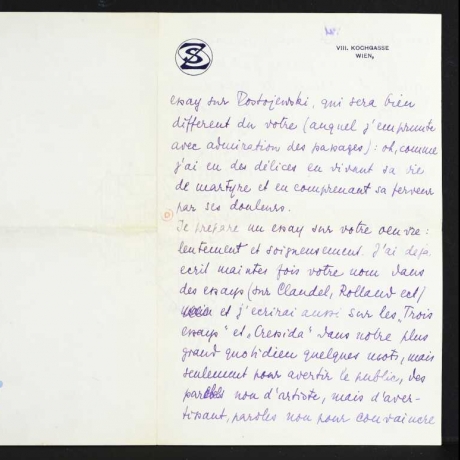 SZ
VIII. KOCHGASSE
WIEN,
essay sur Dostojewski, qui sera bien
different du votre (auquel j'emprunte
avec admiration des passages): oh, comme
j'ai eu des délices en vivant sa vie
de martyre et en comprenant sa ferveur
par ses douleurs.
Je prépare un essay sur votre oeuvre:
lentement et soigneusement. J'ai dejà
ecrit maintes fois votre nom dans
des essays (sur Claudel, Rolland ect/
et j'ecrirai aussi sur les „Trois
essays" et „Cressida" dans notre plus
grand quotidien quelques mots, mais
seulement pour avertir le public, des
paroles non d'artiste, mais d'aver-
tissant, paroles non pour convaincre